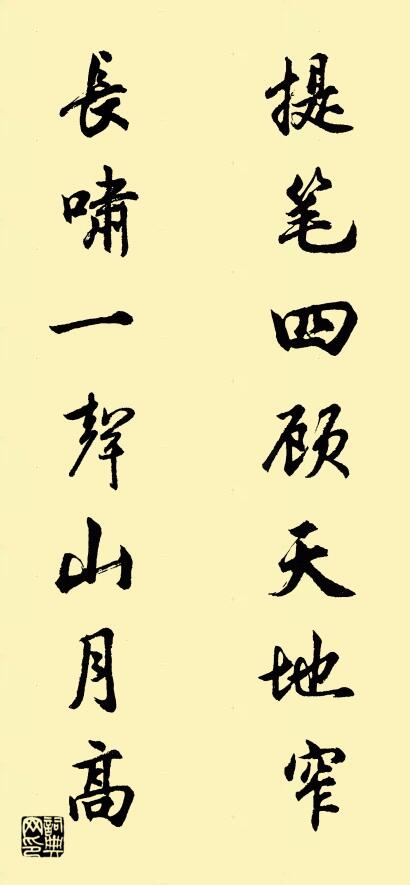 提笔四顾天地窄
長嘯一聲山月高
詞典网印